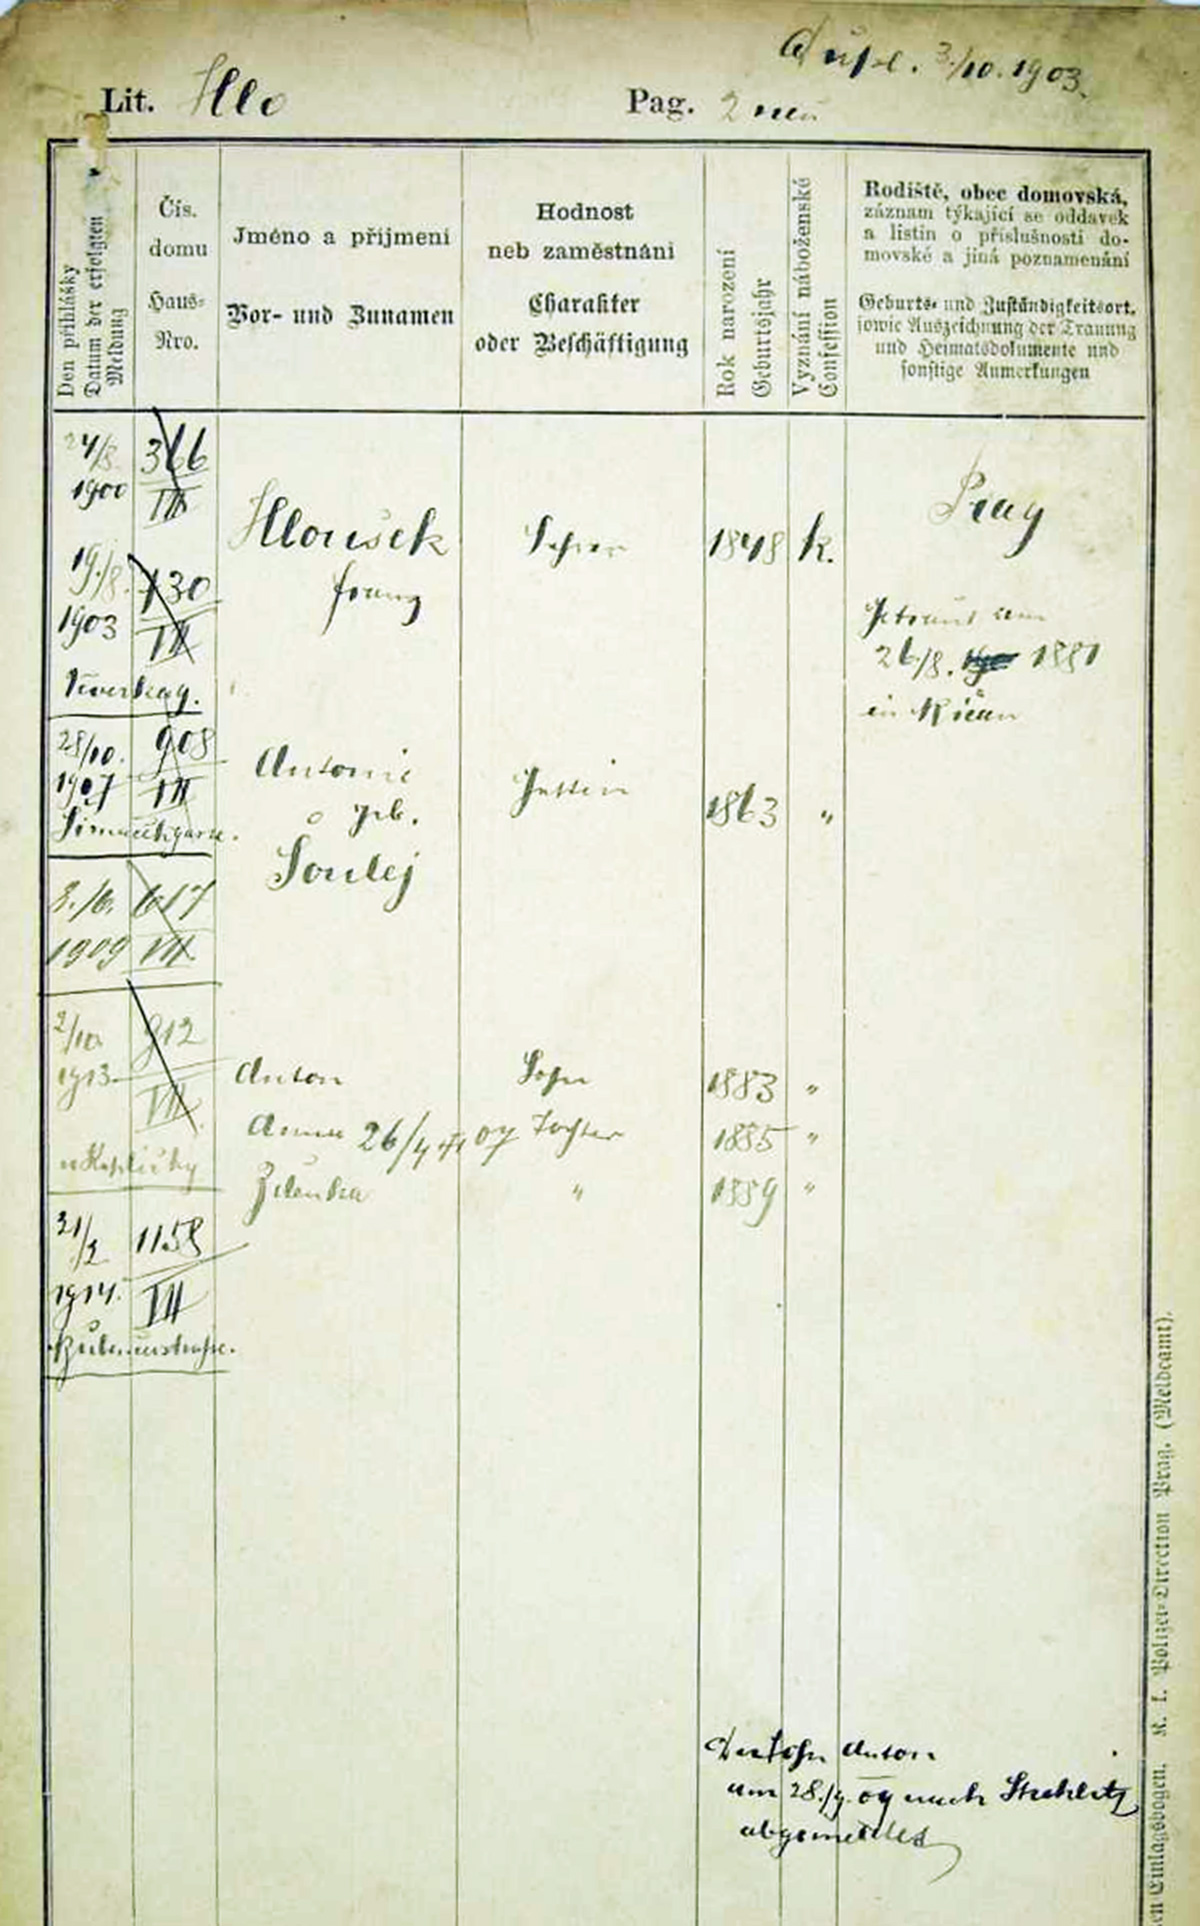 3./10. 1903.
Lit. Hlo Pag. 2 neu
Den přihlášky
Datum der erfolgten
Meldung
Čís.
domu
Haus-
Nro.
Jméno a příjmení
Vor- und Zunamen
Hodnost
neb zaměstnání
Charakter
oder Beschäftigung
Rok narození
Geburtsjahr
Vyznání náboženské
Confession
Rodiště, obec domovská,
záznam týkající se oddavek
a listin o příslušnosti do-
movské a jiná poznamenání
Geburts- und Zuständigkeitsort,
sowie Auszeichnung der Trauung
und Heimatsdokumente und
sonstige Anmerkungen
24/8. 366
1900 III
Hlousek Lehrer 1848 k. Prag
Franz
19./8. 730
1903 VII
Getraut am
26/8. 1881
in Ričan
28/10. 908
1907 VII
Antonie Gattin 1863 "
geb.
Šoulej
8./6. 617
1909 VII
2/10. 912
1913 VII
Anton Sohn 1883 "
Anna 26/4 07 Tochter 1885 "
Zdenka " 1889 "
21/2 1158
1914. VII
Der Sohn Anton
am 28./9. 09 nach Strehlitz
abgemeldet
en Einlagsbogen. K. k. Polizei-Direction Prag. (Meldeamt).